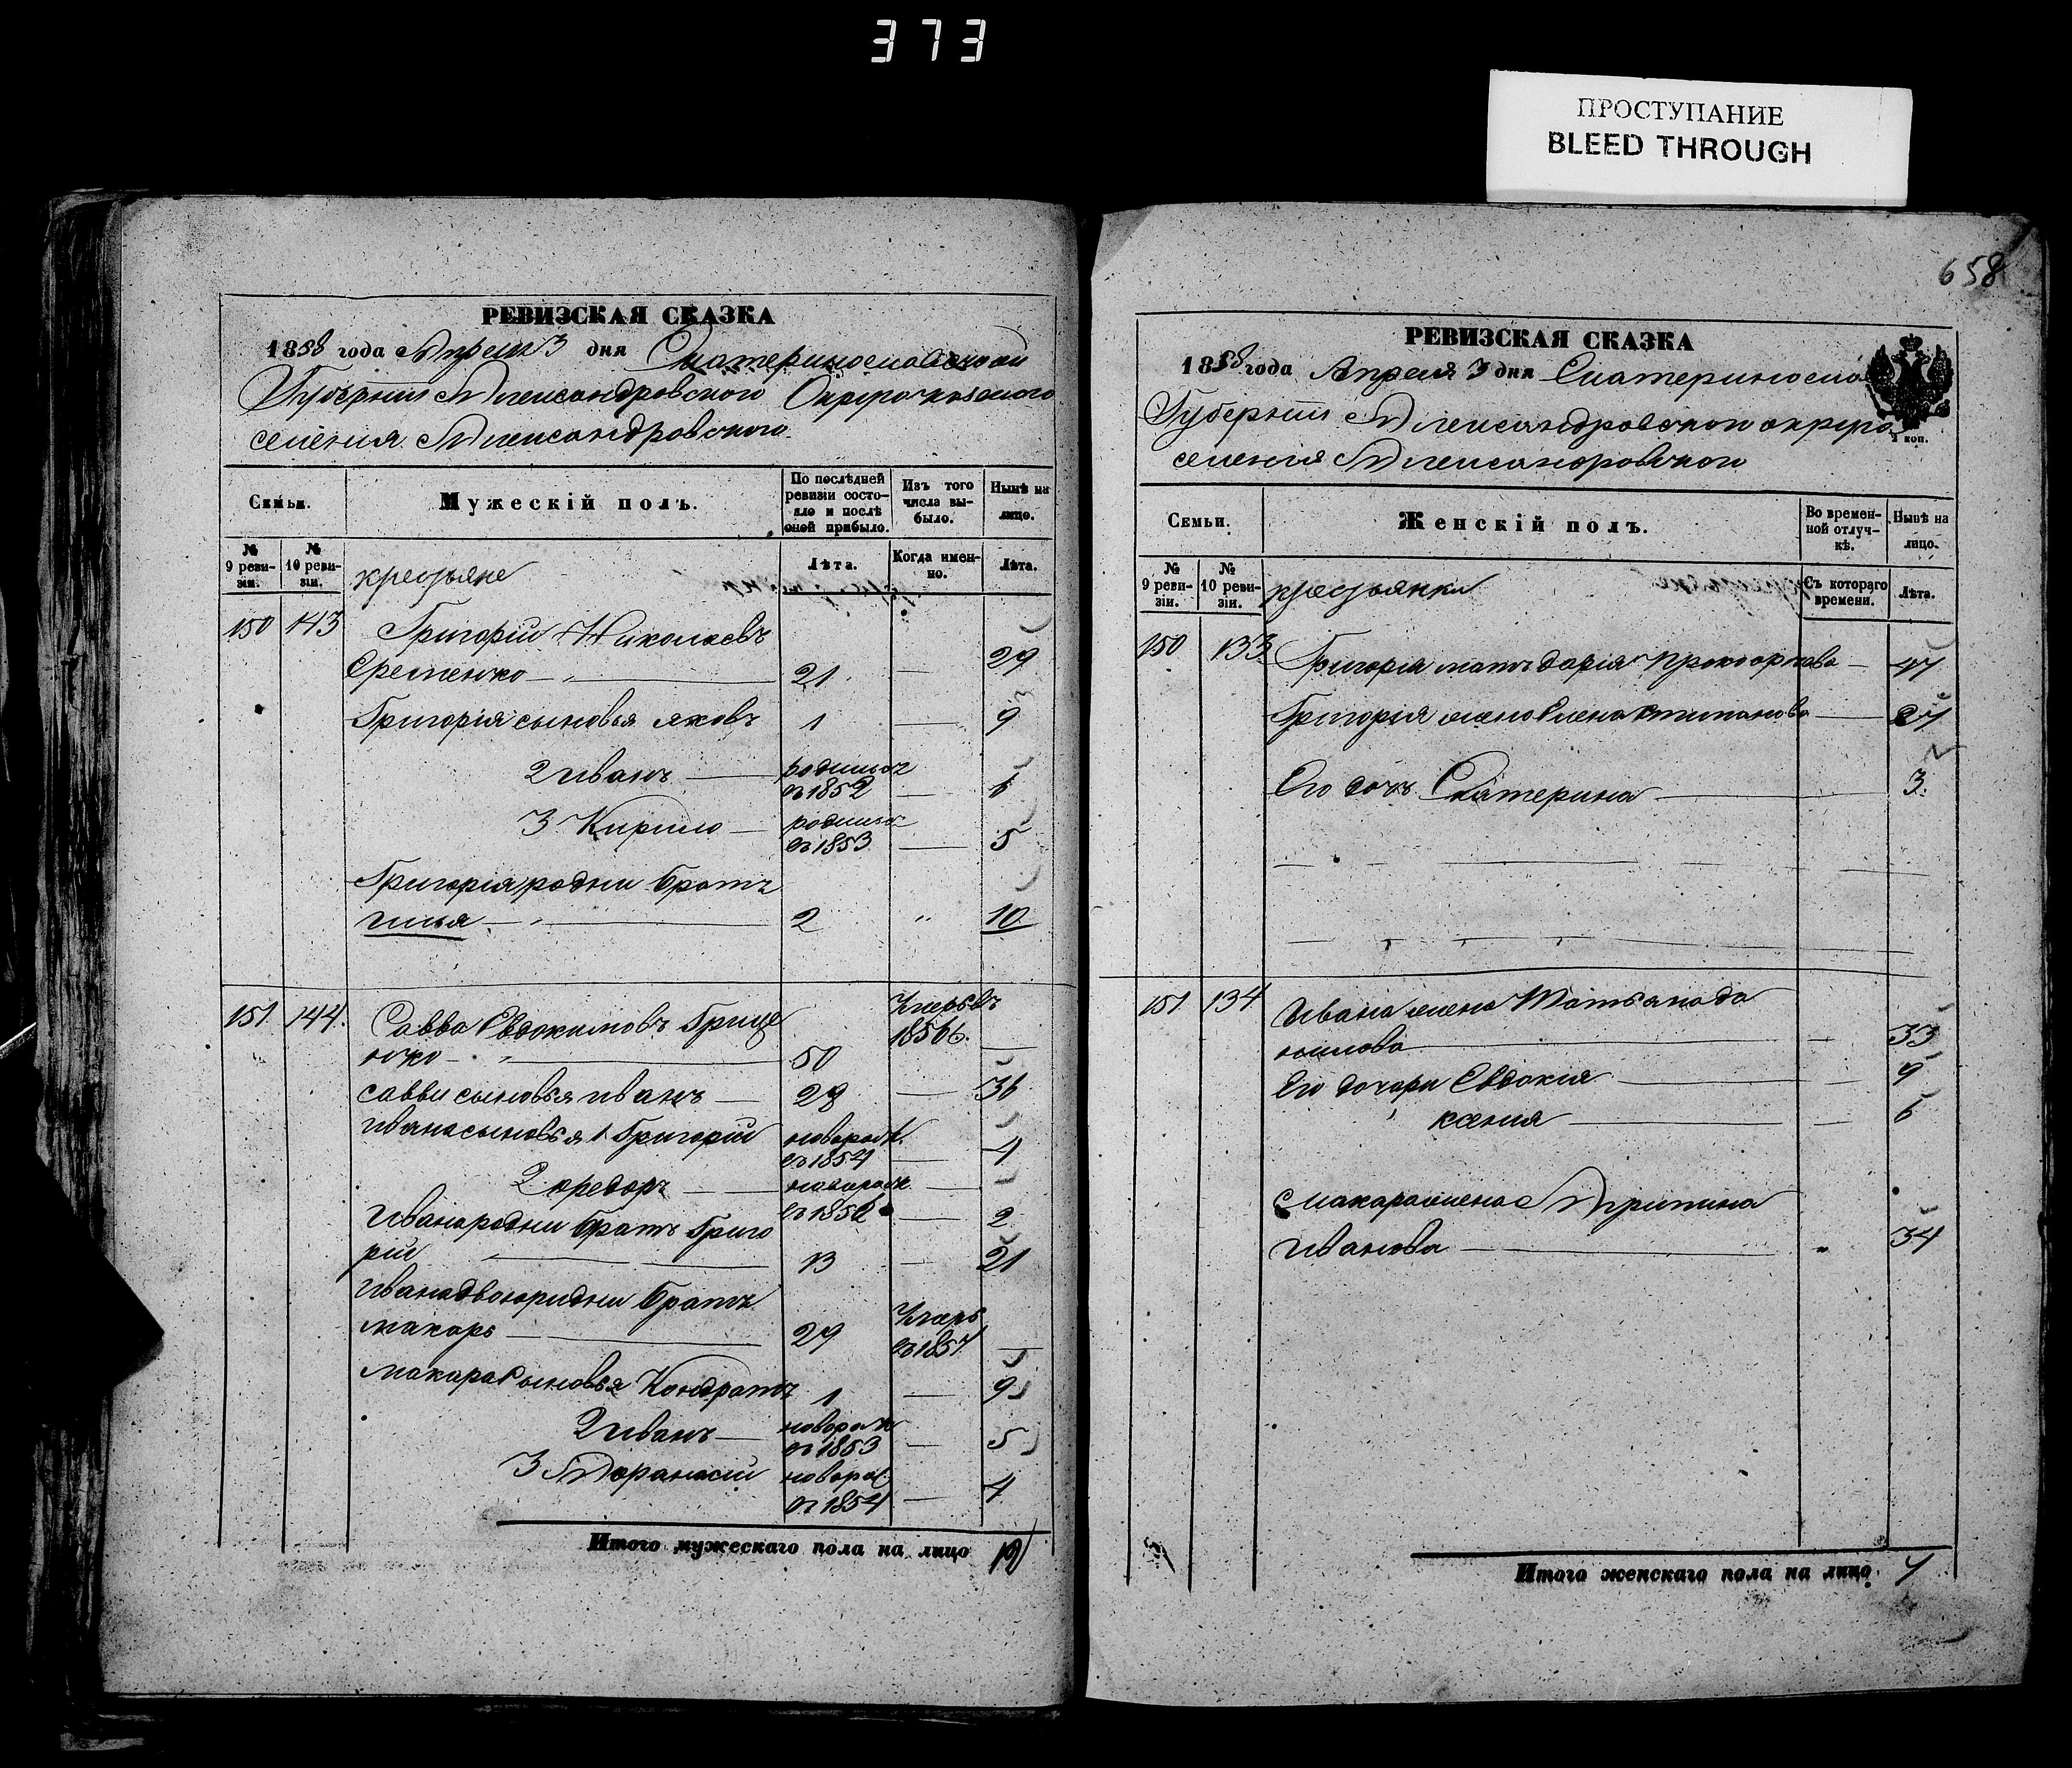 373
ПРОСТУПАНИЕ
BLEED THROUGH
658
РЕВИЗСКАЯ СКАЗКА
1858 года Апреля 3 дня Екатеринославской
Губернии Александровского Округа казенного
селения Александровского
Семьи. Мужескій полъ. По послѣдней ревизіи состояло и послѣ оной прибыло. Изъ того числа выбыло. Нынѣ на лицо.
№ 9 ревизіи. № 10 ревизіи. крестьяне Лѣта. Когда именно. Лѣта.
150 143 Григорій Николаевъ
Еременко 21 29
Григорія сыновья яковъ 1 9
2 иванъ родился въ 1852 6
3 Кирило родился въ 1853 5
Григорія родни братъ
илья 2 10
151 144. Савва Евдокимовъ Грице
нко 50 Умеръ въ 1856.
савви сыновья иванъ 28 36
ивана сыновья 1 Григорій новорож. въ 1854 4
2 федоръ новорож въ 1856 2
Ивана родни братъ Григо
рій 13 21
Ивана двоюридни братъ
макаръ 29 Умеръ въ 1857
макара сыновья Кондратъ 1 9
2 иванъ новорож въ 1853 5
3 Афанасій новорож въ 1854 4
Итого мужескаго пола на лицо
РЕВИЗСКАЯ СКАЗКА
1858 года Апреля 3 дня Екатеринослав
Губерніи Александровской округа
селенія Александровского
коп.
Семьи. Женскій полъ. Во временной отлучкѣ. Нынѣ на лицо.
№ 9 ревизіи. № 10 ревизіи. крестьянки Съ котораго времени. Лѣта.
150 133 Григорія мать дарія Прокофиева 47
Григорія жена Елена степанова 27
Его дочь Екатерина 3.
151 134 Ивана жена Татьяна да
нилова 33
Его дочери Евдокия 9
ксения 6
макара жена Агрипина
Иванова 34
Итого женскаго пола на лицо. 7